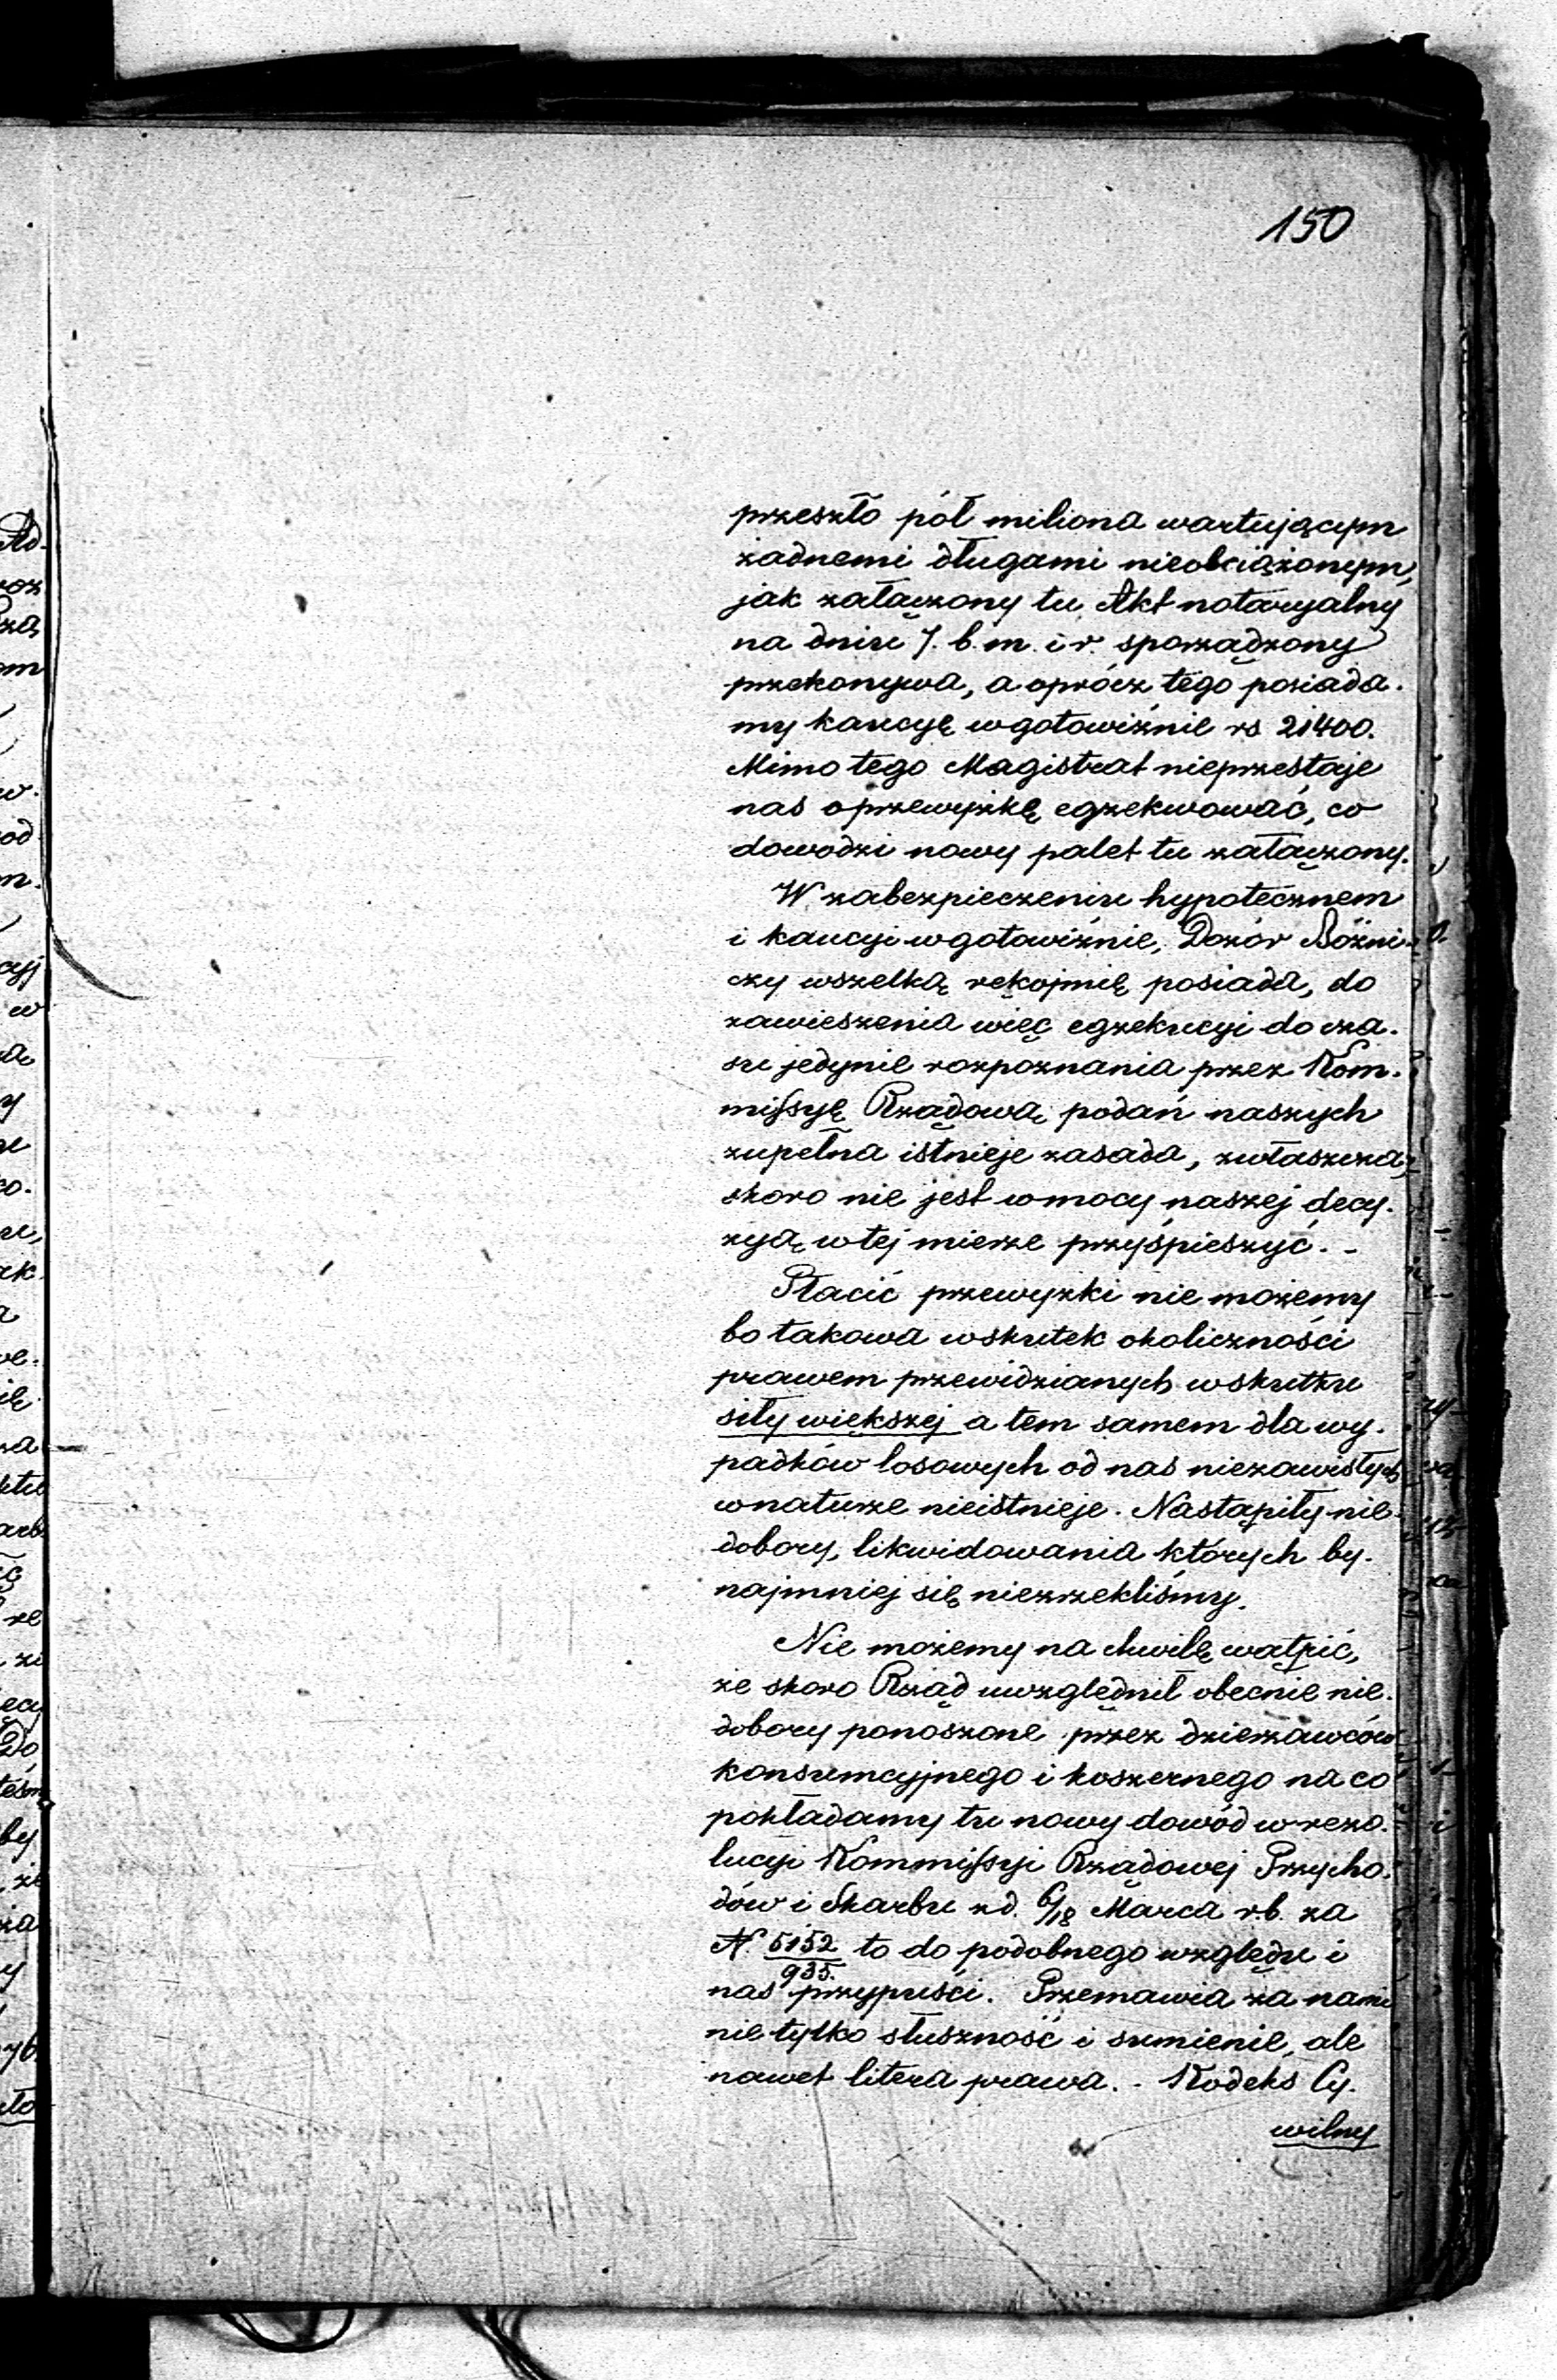 150
przeszło pół miliona wartującym
żadnemi długami nieobciążonym,
jak załączony tu Akt notaryalny
na dniu 7. b. m. i r. sporządzony
przekonywa, a oprócz tego posiada-
my kaucyę w gotowiźnie rs 21400.
Mimo tego Magistrat nieprzestaje
nas o przewyżkę egzekwować, co
dowodzi nowy palet tu załączony.
W zabezpieczeniu hypotecznem
i kaucyi w gotowiźnie, Dozór Bóżni-
czy wszelką rękojmię posiada, do
zawieszenia więc egzekucyi do cza-
su jedynie rozpoznania przez Kom-
missyę Rządową podań naszych
zupełna istnieje zasada, zwłaszcza,
skoro nie jest w mocy naszej decy-
zyą w tej mierze przyśpieszyć. -
Płacić przewyżki nie możemy
bo takowa wskutek okoliczności
prawem przewidzianych wskutku
siły większej a tem samem dla wy-
padków losowych od nas niezawisłych
w naturze nieistnieje. Nastąpiły nie-
dobory, likwidowania których by-
najmniej się niezrzekliśmy.
Nie możemy na chwilę wątpić,
że skoro Rząd uwzględnił obecnie nie-
dobory ponoszone przez dzierżawców
konsumcyjnego i koszernego na co
pokładamy tu nowy dowód w rezo-
lucyi Kommissyi Rządowej Przycho-
dów i Skarbu z d. 6/18 Marca r. b. za
N. 5152/935. to do podobnego względu i
nas przypuści. Przemawia za nami
nie tylko słuszność i sumienie, ale
nawet litera prawa. - Kodeks Cy-
wilny